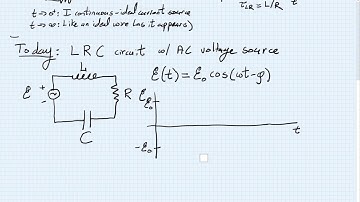 t→0⁺: I continuous-ideal current source
t→∞: Like an ideal wire (as it appears)
τLR = L/R
t
Today: LRC circuit w/ AC voltage source
L
ε(t) = ε₀ cos(ωt-φ)
ε
+
-
R
C
ε
ε₀
t
-ε₀